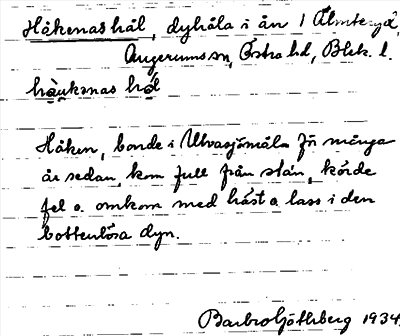 Håkenas hål, dyhåla i ån 1 Älmtengå,
Augerums sn, Östra hd, Blek. l.
håukənas hål
Håken, bonde i Ulvasjömåla för många
år sedan, kom full från stan, körde
fel o. omkom med häst o. lass i den
bottenlösa dyn.
Barbro Götheberg 1934